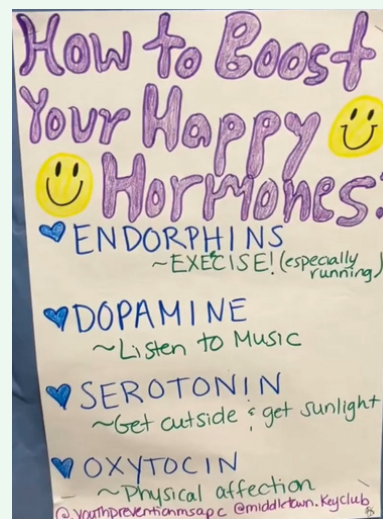 How to Boost
Your Happy
Hormones:
ENDORPHINS
~EXECISE! (especially
running)
DOPAMINE
~Listen to Music
SEROTONIN
~Get outside & get sunlight
OXYTOCIN
~Physical affection
@youthpreventionmsapc @middletown.Keyclub